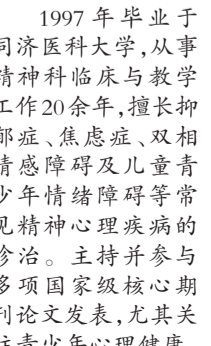 1997年毕业于
同济医科大学,从事
精神科临床与教学
工作20余年,擅长抑
郁症、焦虑症、双相
情感障碍及儿童青
少年情绪障碍等常
见精神心理疾病的
诊治。主持并参与
多项国家级核心期
刊论文发表,尤其关
注青少年心理健康